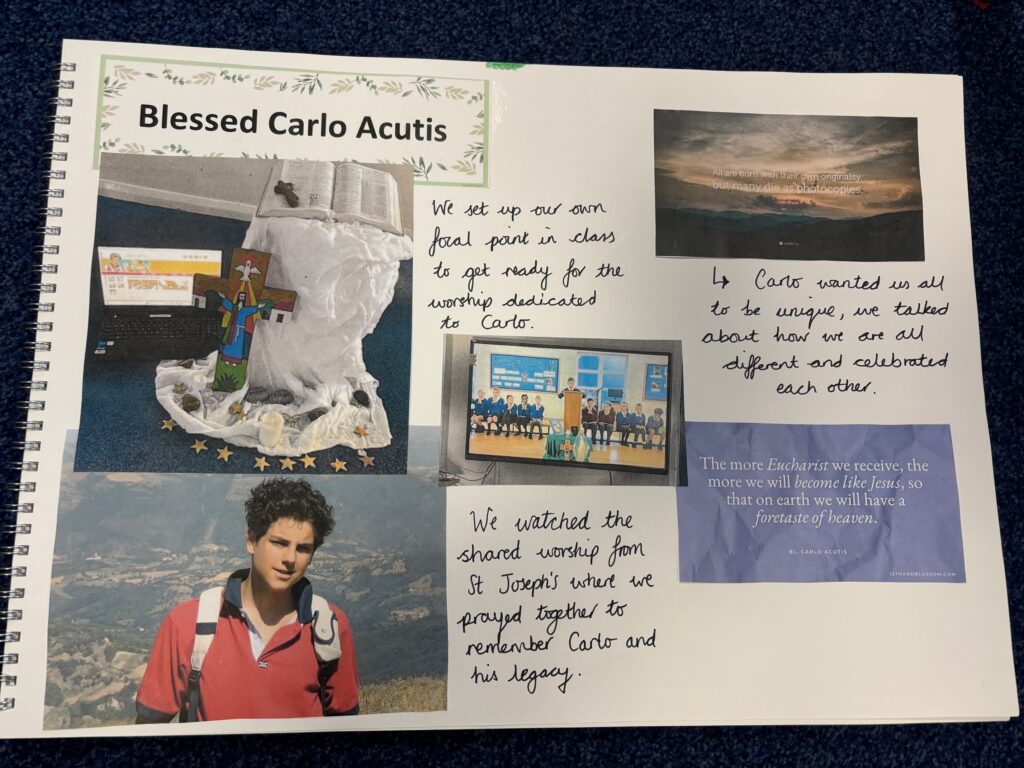 Blessed Carlo Acutis
We set up our own
focal point in class
to get ready for the
worship dedicated
to Carlo.
All are born with their own originality,
but many die as photocopies.
↳ Carlo wanted us all
to be unique, we talked
about how we are all
different and celebrated
each other.
We watched the
shared worship from
St Joseph's where we
prayed together to
remember Carlo and
his legacy.
The more Eucharist we receive, the
more we will become like Jesus, so
that on earth we will have a
foretaste of heaven.
BL. CARLO ACUTIS
12THANDBLOSSOM.COM